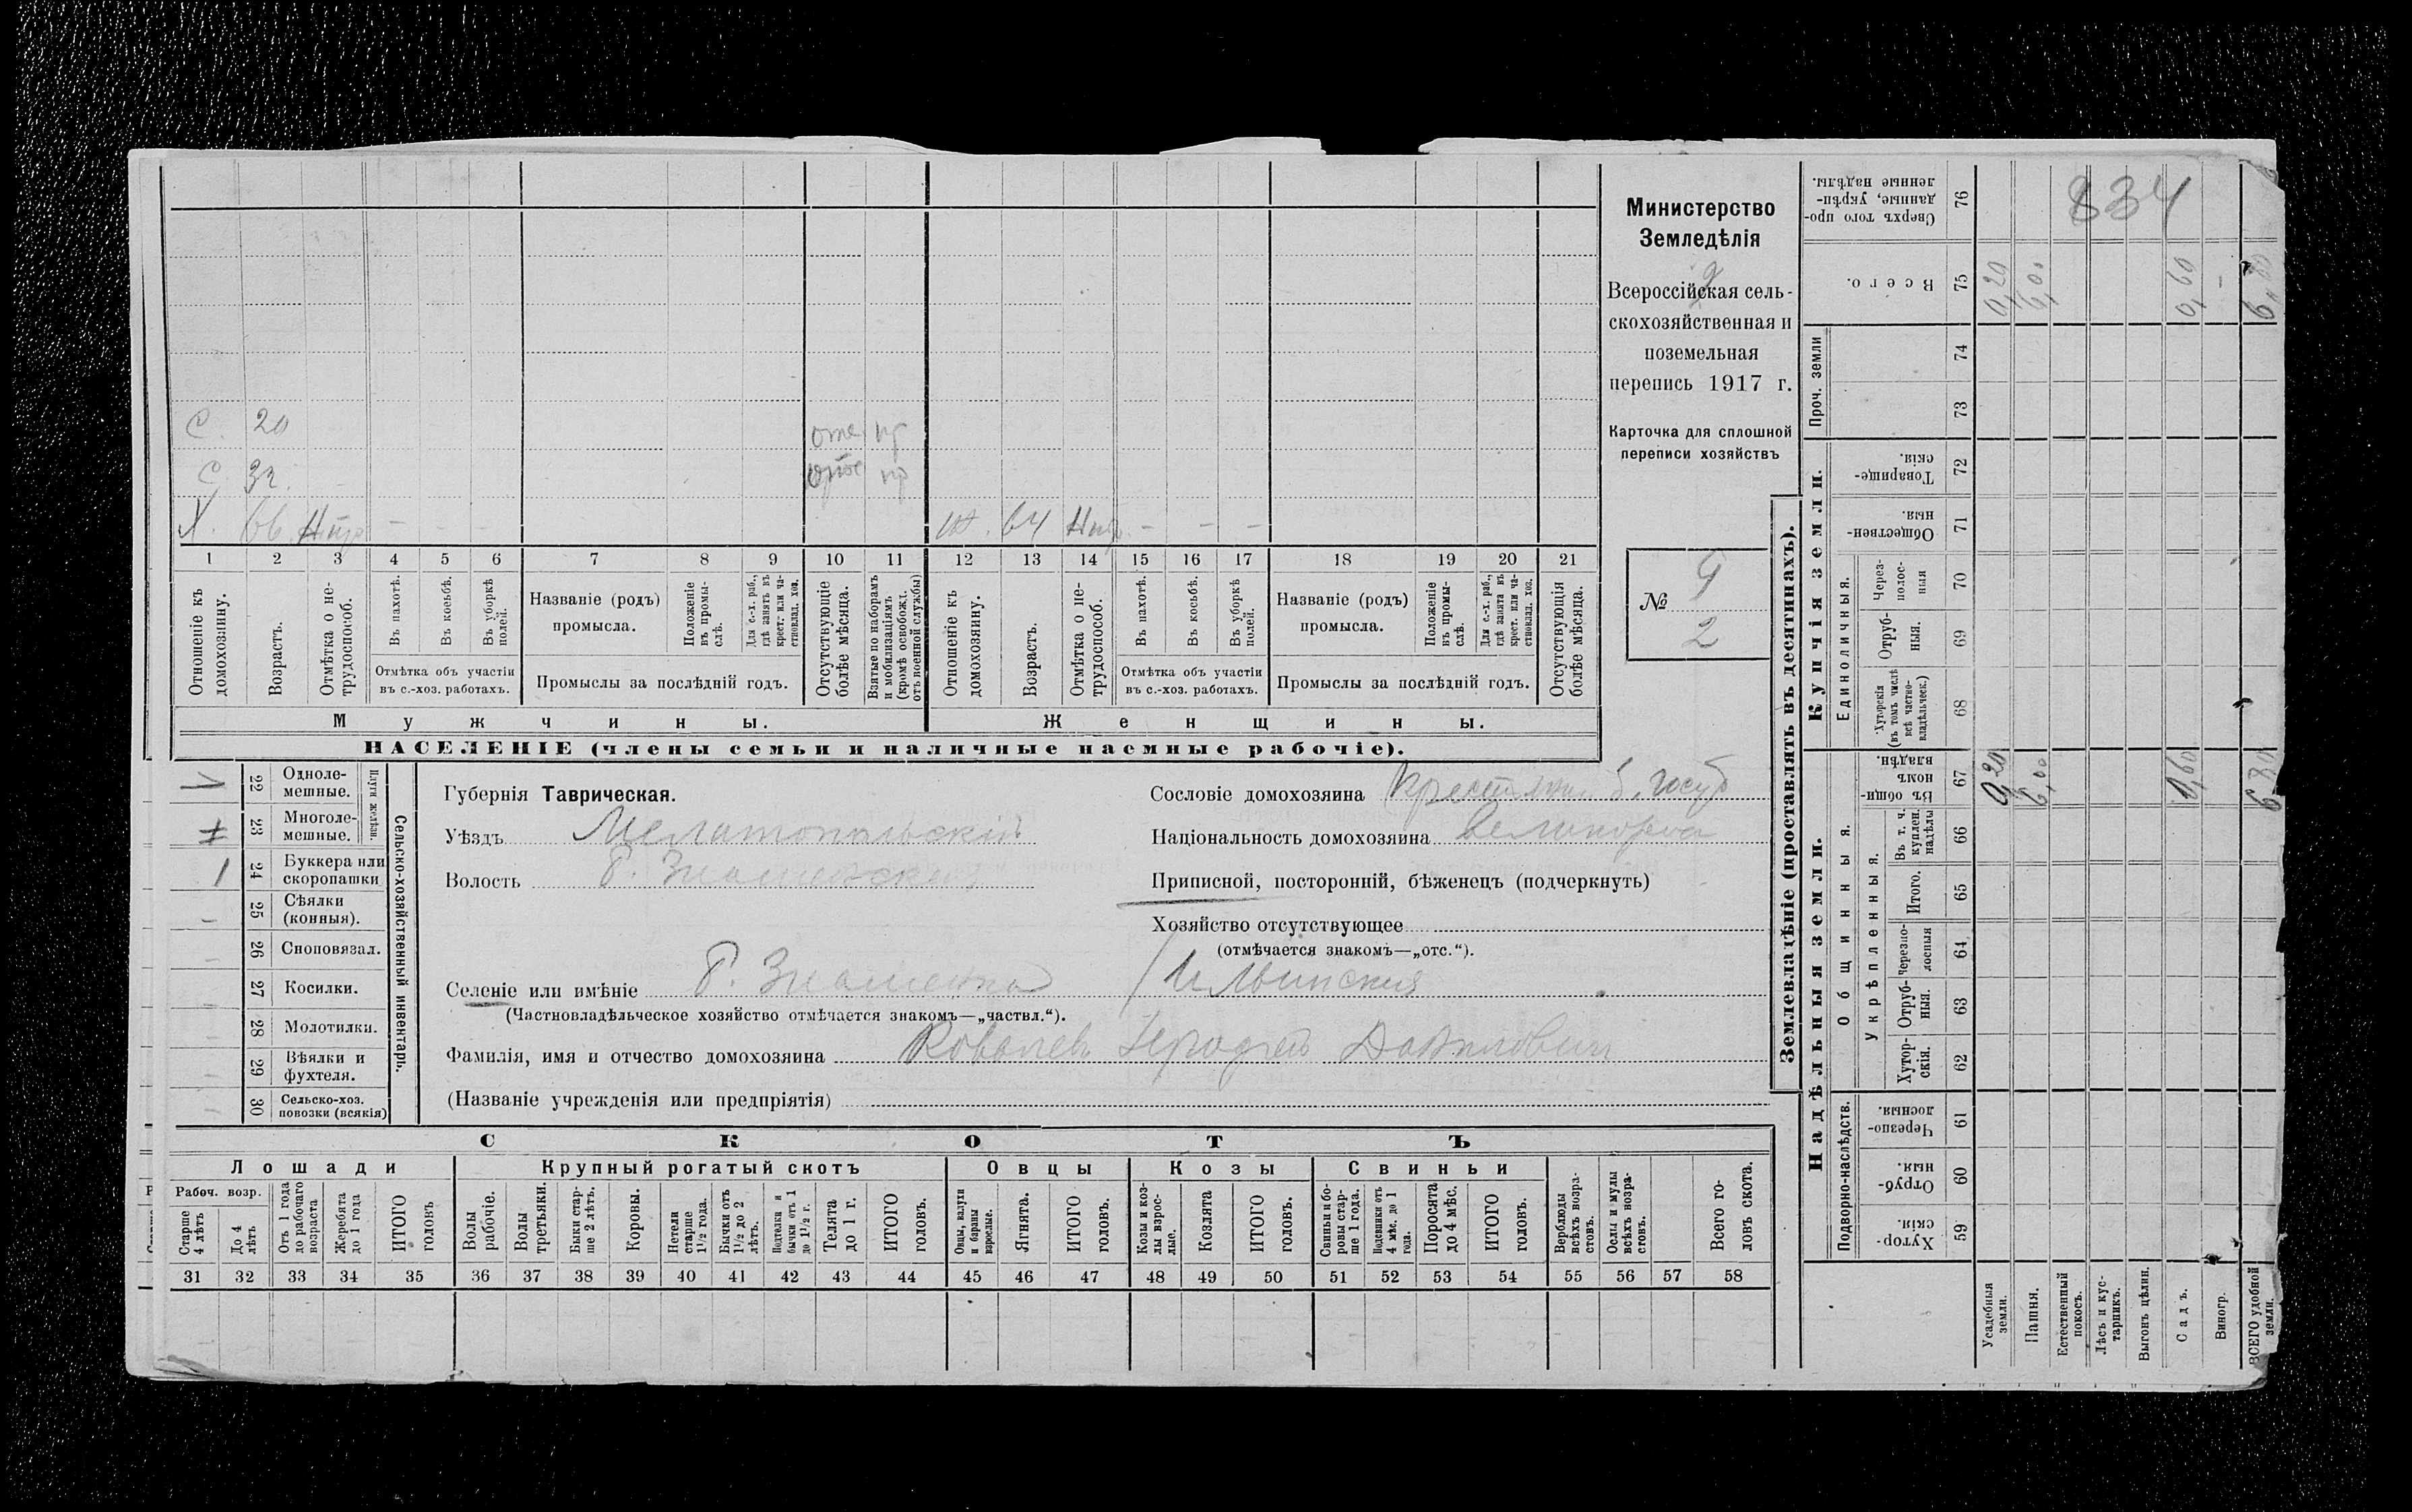 Министерство
Земледѣлія
Всероссійская сель-
скохозяйственная и
поземельная
перепись 1917 г.
Карточка для сплошной
переписи хозяйствъ
№ 9
2
С. 20
С. 32
Х. 66
64
1 2 3 4 5 6 7 8 9 10 11 12 13 14 15 16 17 18 19 20 21
Отношеніе къ домохозяину.
Возрастъ.
Отмѣтка о не-
трудоспособ.
Въ пахотѣ.
Въ косьбѣ.
Въ уборкѣ полей.
Отмѣтка объ участіи
въ с.-хоз. работахъ.
Названіе (родъ)
промысла.
Положеніе въ промы-
слѣ.
Для с.-х. раб., гдѣ занятъ въ крест. или ча-
стновлад. хоз.
Промыслы за послѣдній годъ.
Отсутствующіе болѣе мѣсяца.
Взятые по наборамъ и мобилизаціямъ (кромѣ освобожд. отъ военной службы)
Отношеніе къ домохозяину.
Возрастъ.
Отмѣтка о не-
трудоспособ.
Въ пахотѣ.
Въ косьбѣ.
Въ уборкѣ полей.
Отмѣтка объ участіи
въ с.-хоз. работахъ.
Названіе (родъ)
промысла.
Положеніе въ промы-
слѣ.
Для с.-х. раб., гдѣ занята въ крест. или ча-
стновлад. хоз.
Промыслы за послѣдній годъ.
Отсутствующія болѣе мѣсяца.
Мужчины. Женщины.
НАСЕЛЕНІЕ (члены семьи и наличные наемные рабочіе).
22 Одноле-
мешные.
23 Многоле-
мешные.
Плуги желѣзн.
1 24 Буккера или
скоропашки
25 Сѣялки
(конныя).
26 Сноповязал.
27 Косилки.
28 Молотилки.
29 Вѣялки и
фухтеля.
30 Сельско-хоз.
повозки (всякія)
Сельско-хозяйственный инвентарь.
Губернія Таврическая.
Уѣздъ Мелитопольскій
Волость Б. Знаменская
Селеніе или имѣніе Б. Знаменка / Ильинския
(Частновладѣльческое хозяйство отмѣчается знакомъ—„частвл.“).
Фамилія, имя и отчество домохозяина Ковалев Давилович
(Названіе учрежденія или предпріятія)
Сословіе домохозяина
Національность домохозяина великоросс
Приписной, посторонній, бѣженецъ (подчеркнуть)
Хозяйство отсутствующее
(отмѣчается знакомъ—„отс.“).
СКОТЪ
Лошади Крупный рогатый скотъ Овцы Козы Свиньи
Рабоч. возр.
Старше 4 лѣтъ
До 4 лѣтъ
Отъ 1 года до рабочаго возраста
Жеребята до 1 года
ИТОГО головъ
Волы рабочіе.
Волы третьяки.
Быки стар-
ше 2 лѣтъ.
Коровы.
Нетели старше 1½ года.
Бычки отъ 1½ до 2 лѣтъ.
Подтелки и бычки отъ 1 до 1½ г.
Телята до 1 г.
ИТОГО головъ.
Овцы, валухи и бараны взрослые.
Ягнята.
ИТОГО головъ.
Козы и коз-
лы взрос-
лые.
Козлята
ИТОГО головъ.
Свиньи и бо-
ровы стар-
ше 1 года.
Подсвинки отъ 4 мѣс. до 1 года.
Поросята до 4 мѣс.
ИТОГО головъ.
Верблюды всѣхъ возра-
стовъ.
Ослы и мулы всѣхъ возра-
стовъ.
Всего го-
ловъ скота.
31 32 33 34 35 36 37 38 39 40 41 42 43 44 45 46 47 48 49 50 51 52 53 54 55 56 57 58
Землевладѣніе (проставлять въ десятинахъ).
Надѣльныя земли. Купчія земли. Проч. земли
Подворно-наслѣдств.
Общинныя.
Укрѣпленныя.
Единоличныя.
Хутор-
скія. 59
Отруб-
ныя. 60
Черезпо-
лосныя. 61
Хутор-
скія. 62
Отруб-
ныя. 63
Черезпо-
лосныя 64
Итого. 65
Въ т. ч. куплен. надѣлы 66
Въ общин-
номъ владѣн. 67
Хуторскія (въ томъ числѣ всѣ частно-
владѣльческ.) 68
Отруб-
ныя. 69
Через-
полос-
ныя 70
Обществен-
ныя. 71
Товарище-
скія. 72
73
74
Всего. 75
Сверхъ того про-
данные, укрѣп-
ленные надѣлы. 76
834
Усадебныя земли. 0,20 0,20
Пашня. 6,00 6,00
Естественный покосъ.
Лѣсъ и кус-
тарникъ.
Выгонъ цѣлин.
Садъ. 0,60 0,60
Виногр.
ВСЕГО удобной земли. 6,80 6,80